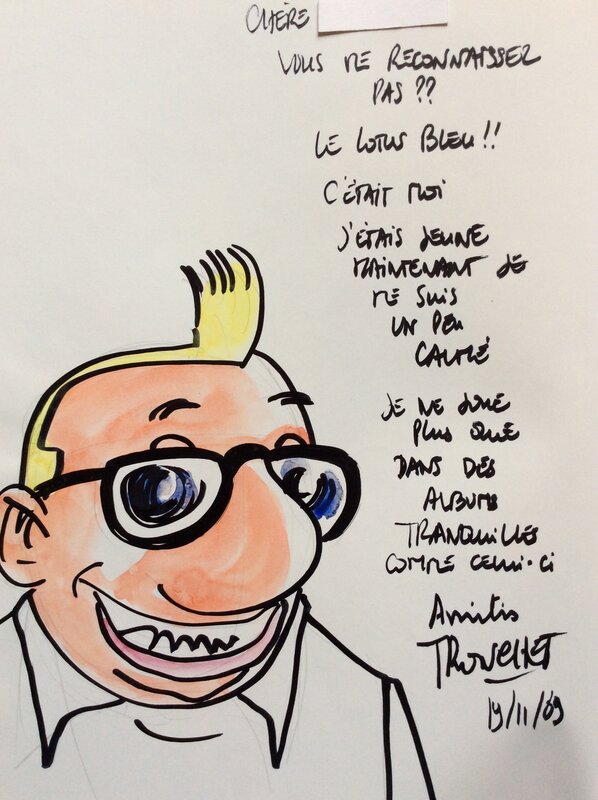 CHÈRE
VOUS NE RECONNAISSEZ
PAS ??
LE LOTUS BLEU !!
C'ÉTAIT MOI
J'ÉTAIS JEUNE
MAINTENANT JE
ME SUIS
UN PEU
CALMÉ
JE NE JOUE
PLUS QUE
DANS DES
ALBUMS
TRANQUILLES
COMME CELUI-CI
Amitiés
TRONCHET
19/11/09